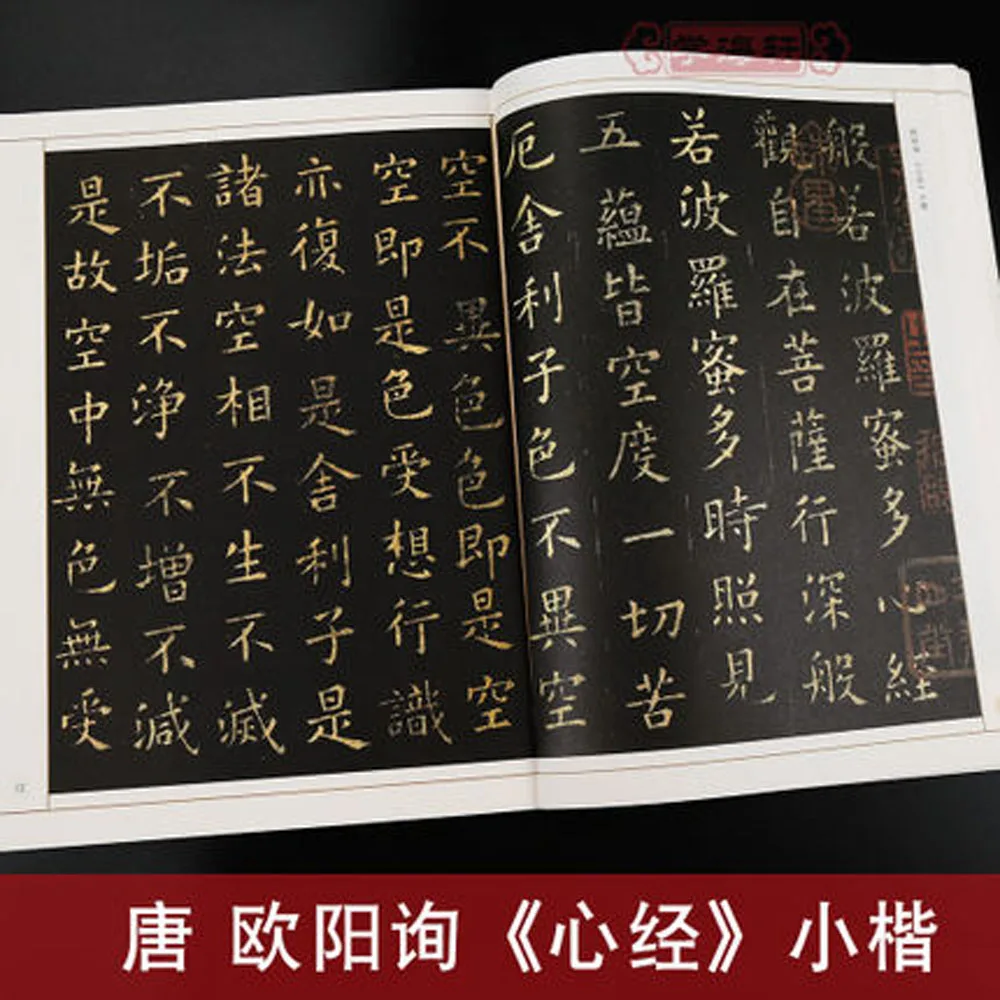 学海轩
般若波羅蜜多心經
觀自在菩薩行深般
若波羅蜜多時照見
五蘊皆空度一切苦
厄舍利子色不異空
空不異色色即是空
空即是色受想行識
亦復如是舍利子是
諸法空相不生不滅
不垢不淨不增不減
是故空中無色無受
唐 欧阳询《心经》小楷